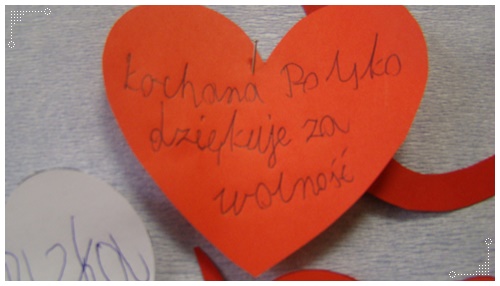 kochaná Polsko
dziękuje za
wolność